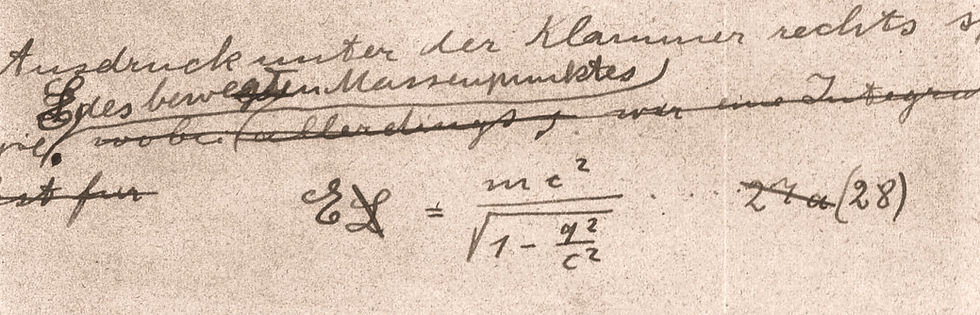 Ausdruck unter der Klammer rechts
des bewegten Massenpunktes
wobei (allerdings, war eine Integra
ist für E = mc² / √(1 - q²/c²) ... 27a (28)